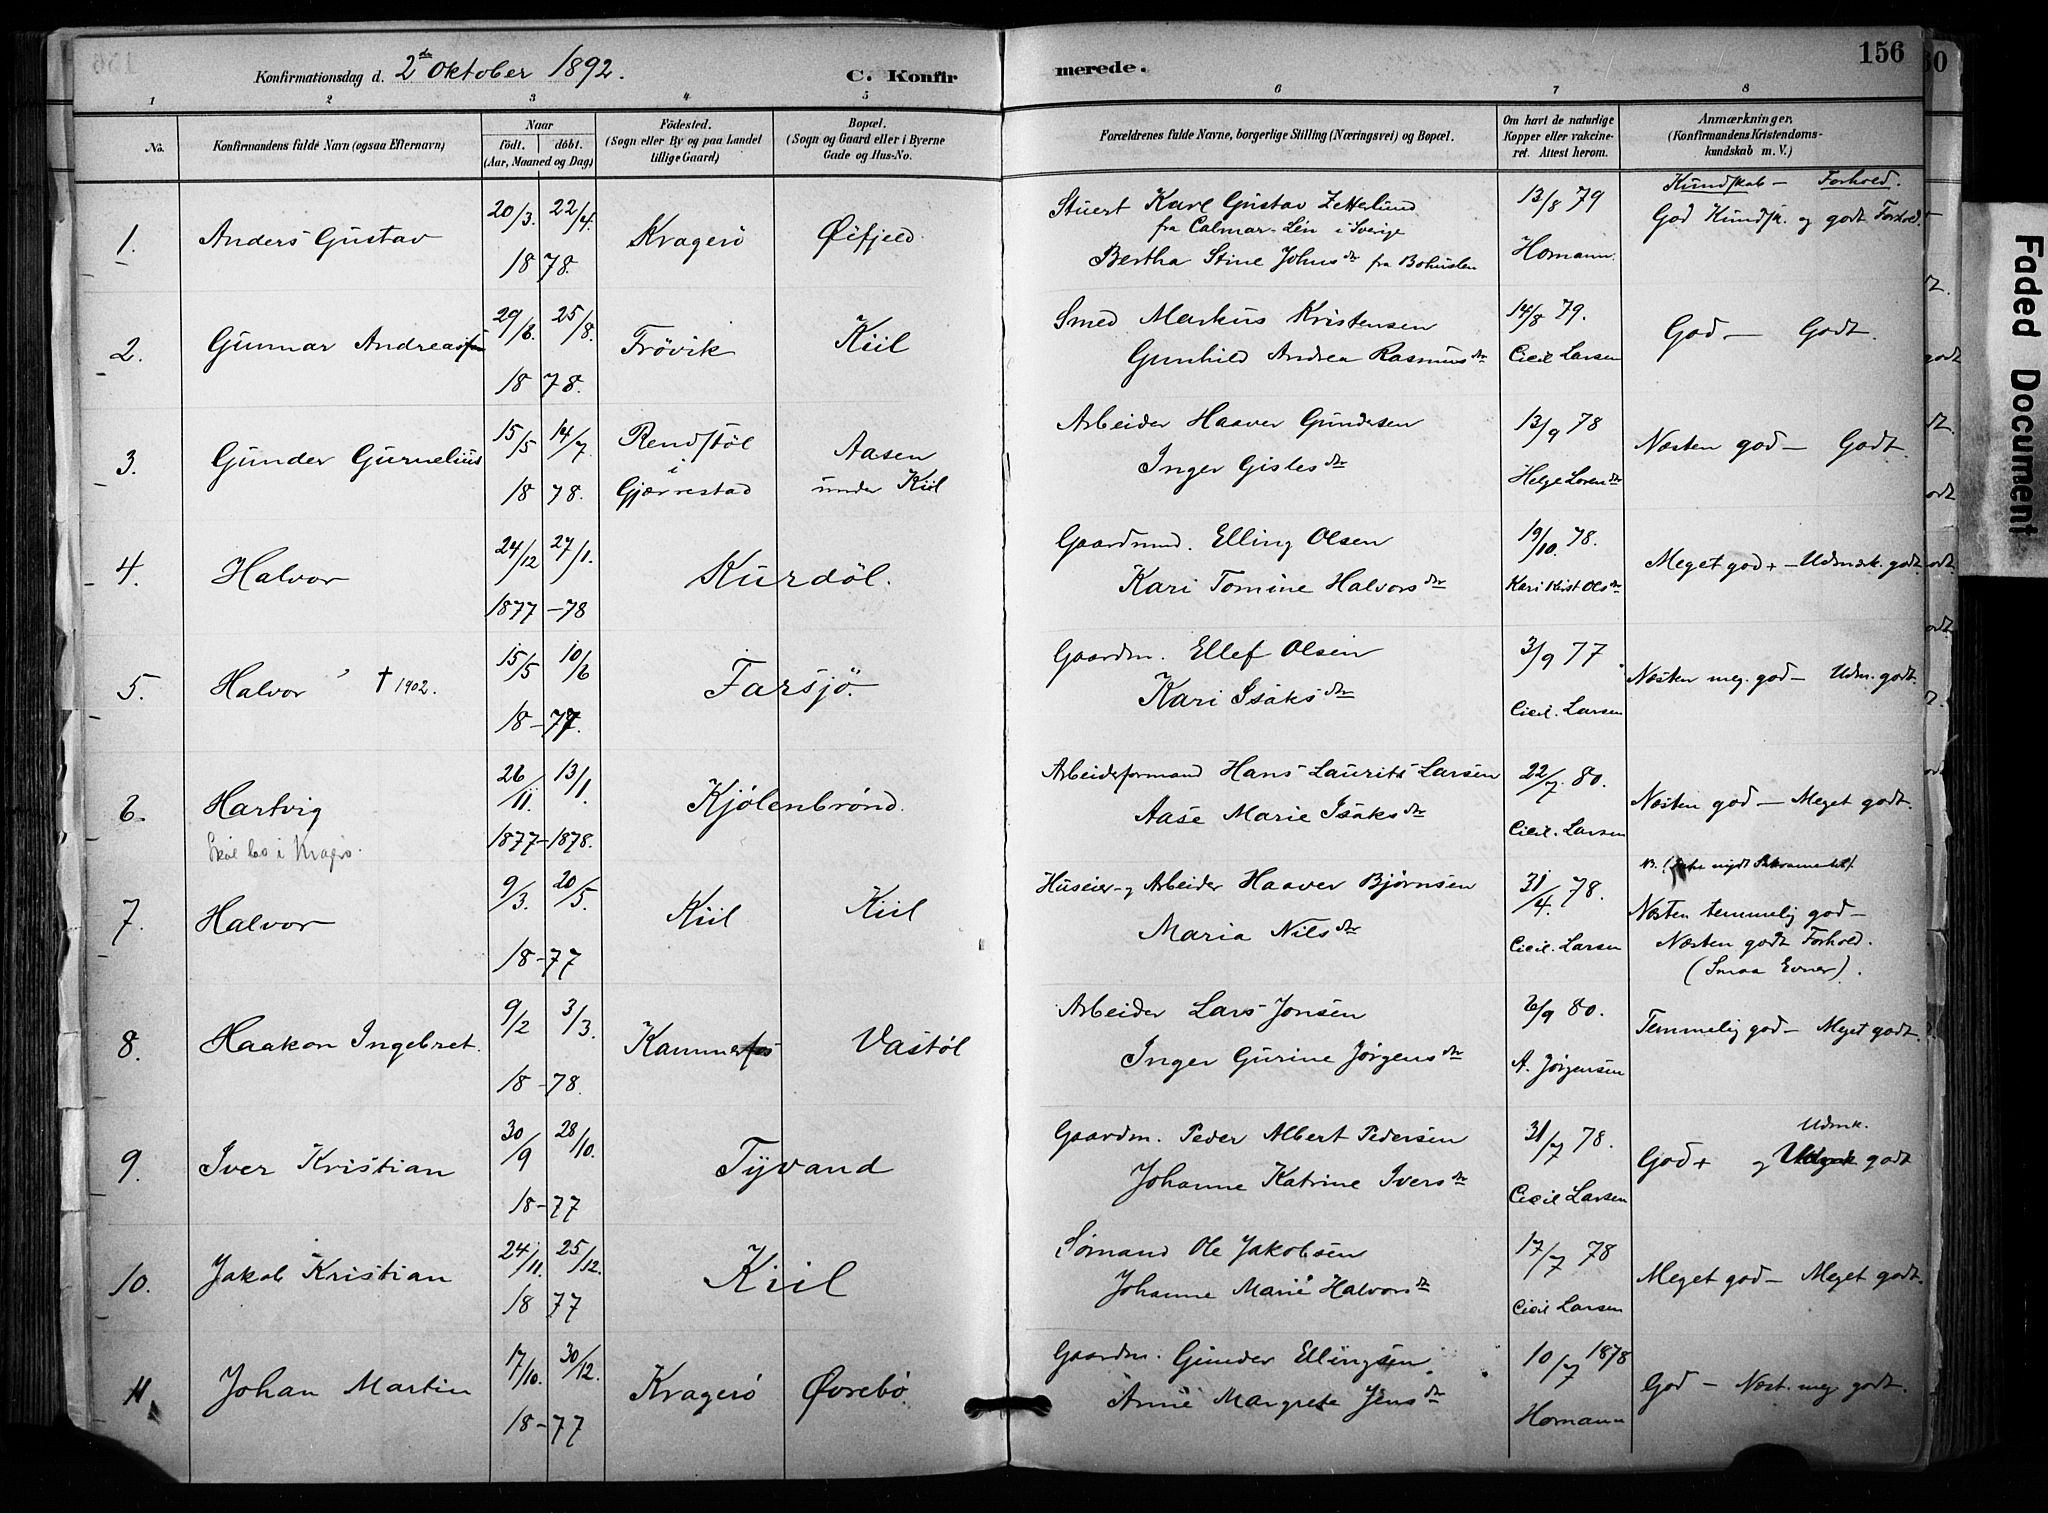 156
Konfirmationsdag d. 2den Oktober 1892.
C. Konfirmerede.
1 2 3 4 5 6 7 8
No.
Konfirmandens fulde Navn (ogsaa Efternavn)
Naar
födt. döbt.
(Aar, Maaned og Dag)
Födested.
(Sogn eller By og paa Landet tillige Gaard)
Bopæl.
(Sogn og Gaard eller i Byerne Gade og Hus-No.
Forældrenes fulde Navne, borgerlige Stilling (Næringsvei) og Bopæl.
Om havt de naturlige Kopper eller vakcineret. Attest herom.
Anmærkninger.
(Konfirmandens Kristendomskundskab m. V.)
Kundskab — Forhold.
1. Anders Gustav 20/3. 22/4. 18 78. Kragerö Øifjeld
Stuert Karl Gustav Zetterlund
fra Calmar-Lén i Sverige
Bertha Stine Johnsdr fra Bohuslen
13/8 79 Homann.
God Kundsk. og godt Forhold.
2. Gunnar Andreas 29/6. 25/8. 18 78. Frövik Kiil
Smed Markus Kristensen
Gunhild Andrea Rasmusdr
14/8 79. Cicil Larsen
God — Godt.
3. Gunder Gurnelius 15/5 14/7. 18 78. Rendstöl i Gjærrestad Aasen under Kiil
Arbeider Haaver Gundersen
Inger Gislesdr
13/9 78 Helge Lorendr
Næsten god — Godt.
4. Halvor 24/12 27/1. 1877 —78 Kurdöl.
Gaardmd. Elling Olsen
Kari Tomine Halvorsdr
19/10. 78. Kari Kirst Olsdr
Meget god + — Udmærk. godt.
5. Halvor † 1902. 15/5 10/6 18—77. Farsjö.
Gaardm. Ellef Olsen
Kari Isaksdr
3/9 77 Cicil. Larsen
Næsten meg. god — Udm. godt.
6. Hartvig 26/11. 13/1. 1877—1878. Kjölenbrönd.
i Kragerö.
Arbeidsformand Hans Laurits Larsen
Aase Marie Isaksdr
22/7. 80. Cicil. Larsen
Næsten god — Meget godt.
7. Halvor 9/3. 20/5. 18—77 Kiil Kiil
Huseier og Arbeider Haaver Bjørnsen
Maria Nilsdr
31/4. 78. Cicil. Larsen
NB. (Ikke nydt Sakramentet).
Næsten temmelig god —
Næsten godt Forhold.
(Smaa Evner).
8. Haakon Ingebret. 9/2 3/3. 18—78. Kammerfos Vastöl
Arbeider Lars Jonsen
Inger Gurine Jørgensdr
6/9 80. A. Jørgensen
Temmelig god — Meget godt.
9. Iver Kristian 30/9 28/10. 18—77 Tyvand
Gaardm. Peder Albert Pedersen
Johanne Katrine Iversdr
31/7 78. Cecil Larsen
Udmk.
God + og godt
10. Jakob Kristian 24/11. 25/12. 18 77 Kiil
Sømand Ole Jakobsen
Johanne Marie Halvorsdr
17/7 78 Cicil Larsen
Meget god — Meget godt.
11. Johan Martin 17/10. 30/12. 18—77 Kragerö Øvrebö
Gaardm. Gunder Ellingsen
Anne Margrete Jensdr
10/7 1878 Homann
God — Næst. meg godt.
Faded Document